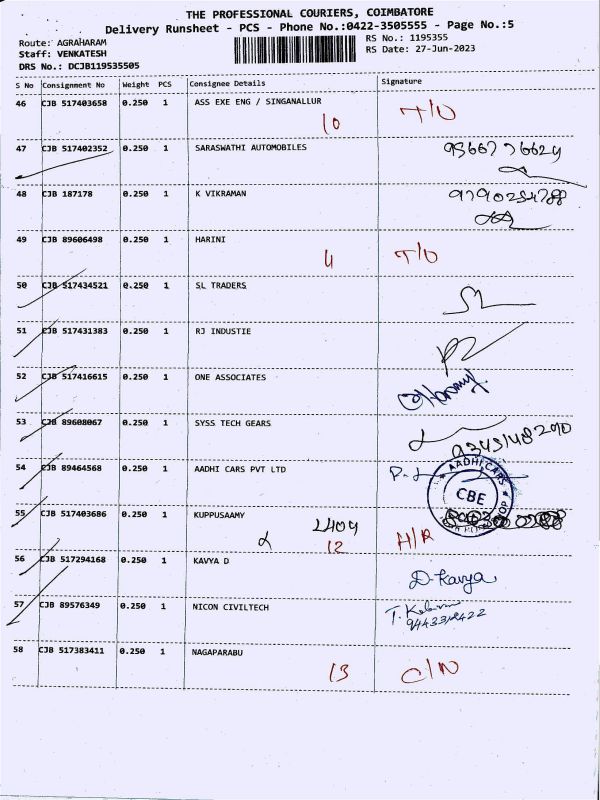 THE PROFESSIONAL COURIERS, COIMBATORE
Delivery Runsheet - PCS - Phone No.:0422-3505555 - Page No.:5
Route: AGRAHARAM RS No.: 1195355
Staff: VENKATESH RS Date: 27-Jun-2023
DRS No.: DCJB119535505
S No Consignment No Weight PCS Consignee Details Signature
46 CJB 517403658 0.250 1 ASS EXE ENG / SINGANALLUR
10 T/O
47 CJB 517402352 0.250 1 SARASWATHI AUTOMOBILES
48 CJB 187178 0.250 1 K VIKRAMAN
49 CJB 89606498 0.250 1 HARINI
4 T/O
50 CJB 517434521 0.250 1 SL TRADERS
SL
51 CJB 517431383 0.250 1 RJ INDUSTIE
52 CJB 517416615 0.250 1 ONE ASSOCIATES
53 CJB 89608067 0.250 1 SYSS TECH GEARS
54 CJB 89464568 0.250 1 AADHI CARS PVT LTD
AADHI CARS
CBE
55 CJB 517403686 0.250 1 KUPPUSAAMY
2404
12 H/R
56 CJB 517294168 0.250 1 KAVYA D
D. Kavya
57 CJB 89576349 0.250 1 NICON CIVILTECH
58 CJB 517383411 0.250 1 NAGAPARABU
13 C/N